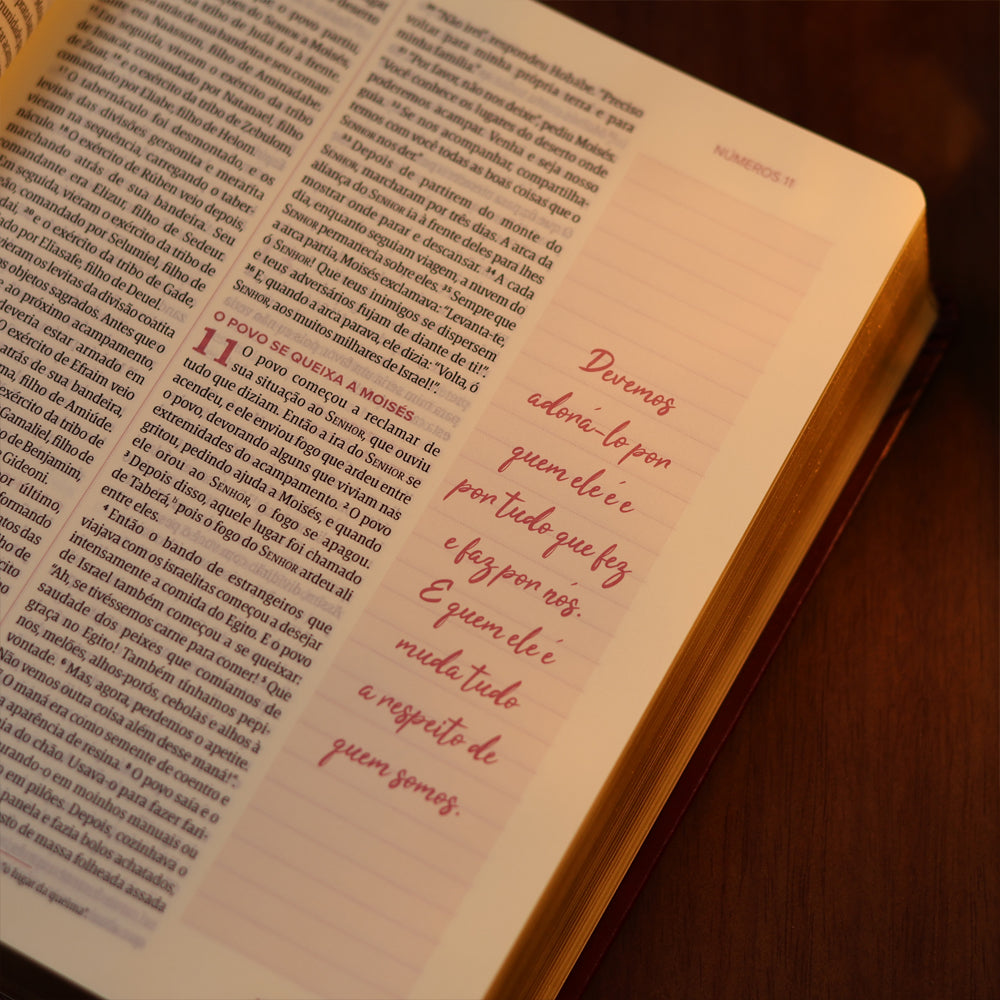 o povo, partiu,
SENHOR a Moisés.
da tribo de Judá foi à frente
de sua bandeira e seu coman-
era Naassom, filho de Aminadabe.
seguida, vieram o exército da tribo
de Issacar, comandado por Natanael, filho
de Zuar, ¹⁶ e o exército da tribo de Zebulom,
comandado por Eliabe, filho de Helom.
¹⁷ O tabernáculo foi desmontado, e os
levitas das divisões gersonita e merarita
vieram na sequência, carregando o taber-
náculo. ¹⁸ O exército de Rúben veio depois,
marchando atrás de sua bandeira. Seu
comandante era Elizur, filho de Sedeur.
Em seguida, vieram o exército da tribo de
comandado por Selumiel, filho de
²⁰ e o exército da tribo de Gade,
por Eliasafe, filho de Deuel.
vieram os levitas da divisão coatita
objetos sagrados. Antes que
ao próximo acampamento,
deveria estar armado em
O exército de Efraim veio
atrás de sua bandeira,
filho de Amiúde.
exército da tribo de
Gamaliel, filho de
de Benjamim,
Gideoni.
por último,
formando
das
de
"Não irei", respondeu Hobabe. "Preciso
voltar para minha própria terra e para
minha família."
"Por favor, não nos deixe", pediu Moisés.
"Você conhece os lugares do deserto onde
podemos acampar. Venha e seja nosso
guia. ³² Se nos acompanhar, compartilha-
remos com você todas as boas coisas que o
SENHOR nos der."
³³ Depois de partirem do monte do
SENHOR, marcharam por três dias. A arca da
aliança do SENHOR ia à frente deles para lhes
mostrar onde parar e descansar. ³⁴ A cada
dia, enquanto seguiam viagem, a nuvem do
SENHOR permanecia sobre eles. ³⁵ Sempre que
a arca partia, Moisés exclamava: "Levanta-te,
ó SENHOR! Que teus inimigos se dispersem
e teus adversários fujam de diante de ti!".
³⁶ E, quando a arca parava, ele dizia: "Volta, ó
SENHOR, aos muitos milhares de Israel!".
O POVO SE QUEIXA A MOISÉS
11 O povo começou a reclamar de
sua situação ao SENHOR, que ouviu
tudo que diziam. Então a ira do SENHOR se
acendeu, e ele enviou fogo que ardeu entre
o povo, devorando alguns que viviam nas
extremidades do acampamento. ² O povo
gritou, pedindo ajuda a Moisés, e quando
ele orou ao SENHOR, o fogo se apagou.
³ Depois disso, aquele lugar foi chamado
de Taberá,ᵇ pois o fogo do SENHOR ardeu ali
entre eles.
⁴ Então o bando de estrangeiros que
viajava com os israelitas começou a desejar
intensamente a comida do Egito. E o povo
de Israel também começou a se queixar:
"Ah, se tivéssemos carne para comer! ⁵ Que
saudade dos peixes que comíamos de
graça no Egito! Também tínhamos pepi-
nos, melões, alhos-porós, cebolas e alhos à
vontade. ⁶ Mas, agora, perdemos o apetite.
Não vemos outra coisa além desse maná!".
⁷ O maná era como semente de coentro e
a aparência de resina. ⁸ O povo saía e o
do chão. Usava-o para fazer fari-
em moinhos manuais ou
em pilões. Depois, cozinhava o
panela e fazia bolos achatados,
de massa folheada assada
"o lugar da queima".
NÚMEROS 11
Devemos
adorá-lo por
quem ele é e
por tudo que fez
e faz por nós.
E quem ele é
muda tudo
a respeito de
quem somos.